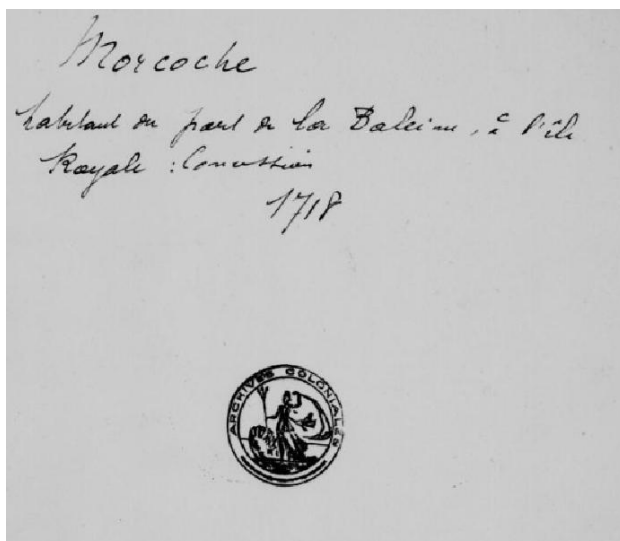 Morcoche
habitant du port de la Baleine, à l'île
Royale : Concussion
1718
ARCHIVES COLONIALES